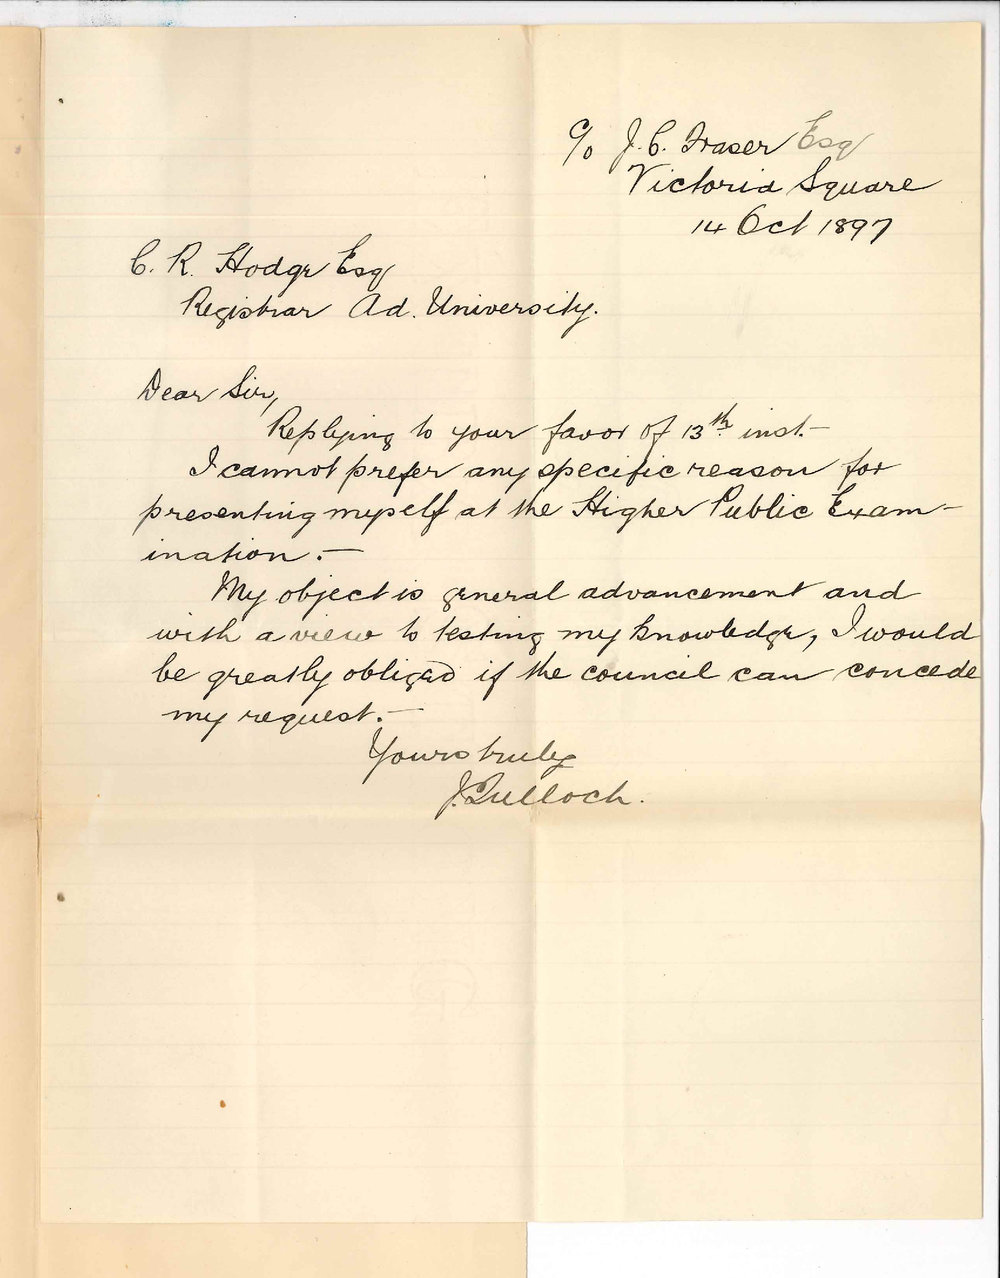 c/o J. C. Fraser Esq
Victoria Square
14 Oct 1897
C. R. Hodge Esq
Registrar Ad. University.
Dear Sir,
Replying to your favor of 13th inst.—
I cannot prefer any specific reason for
presenting myself at the Higher Public Exam-
ination.—
My object is general advancement and
with a view to testing my knowledge, I would
be greatly obliged if the council can concede
my request.—
Yours truly
J. Tulloch.